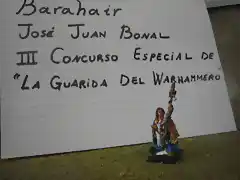 Barahair
José Juan Bonal
III Concurso Especial de
"La Guarida Del Warhammero